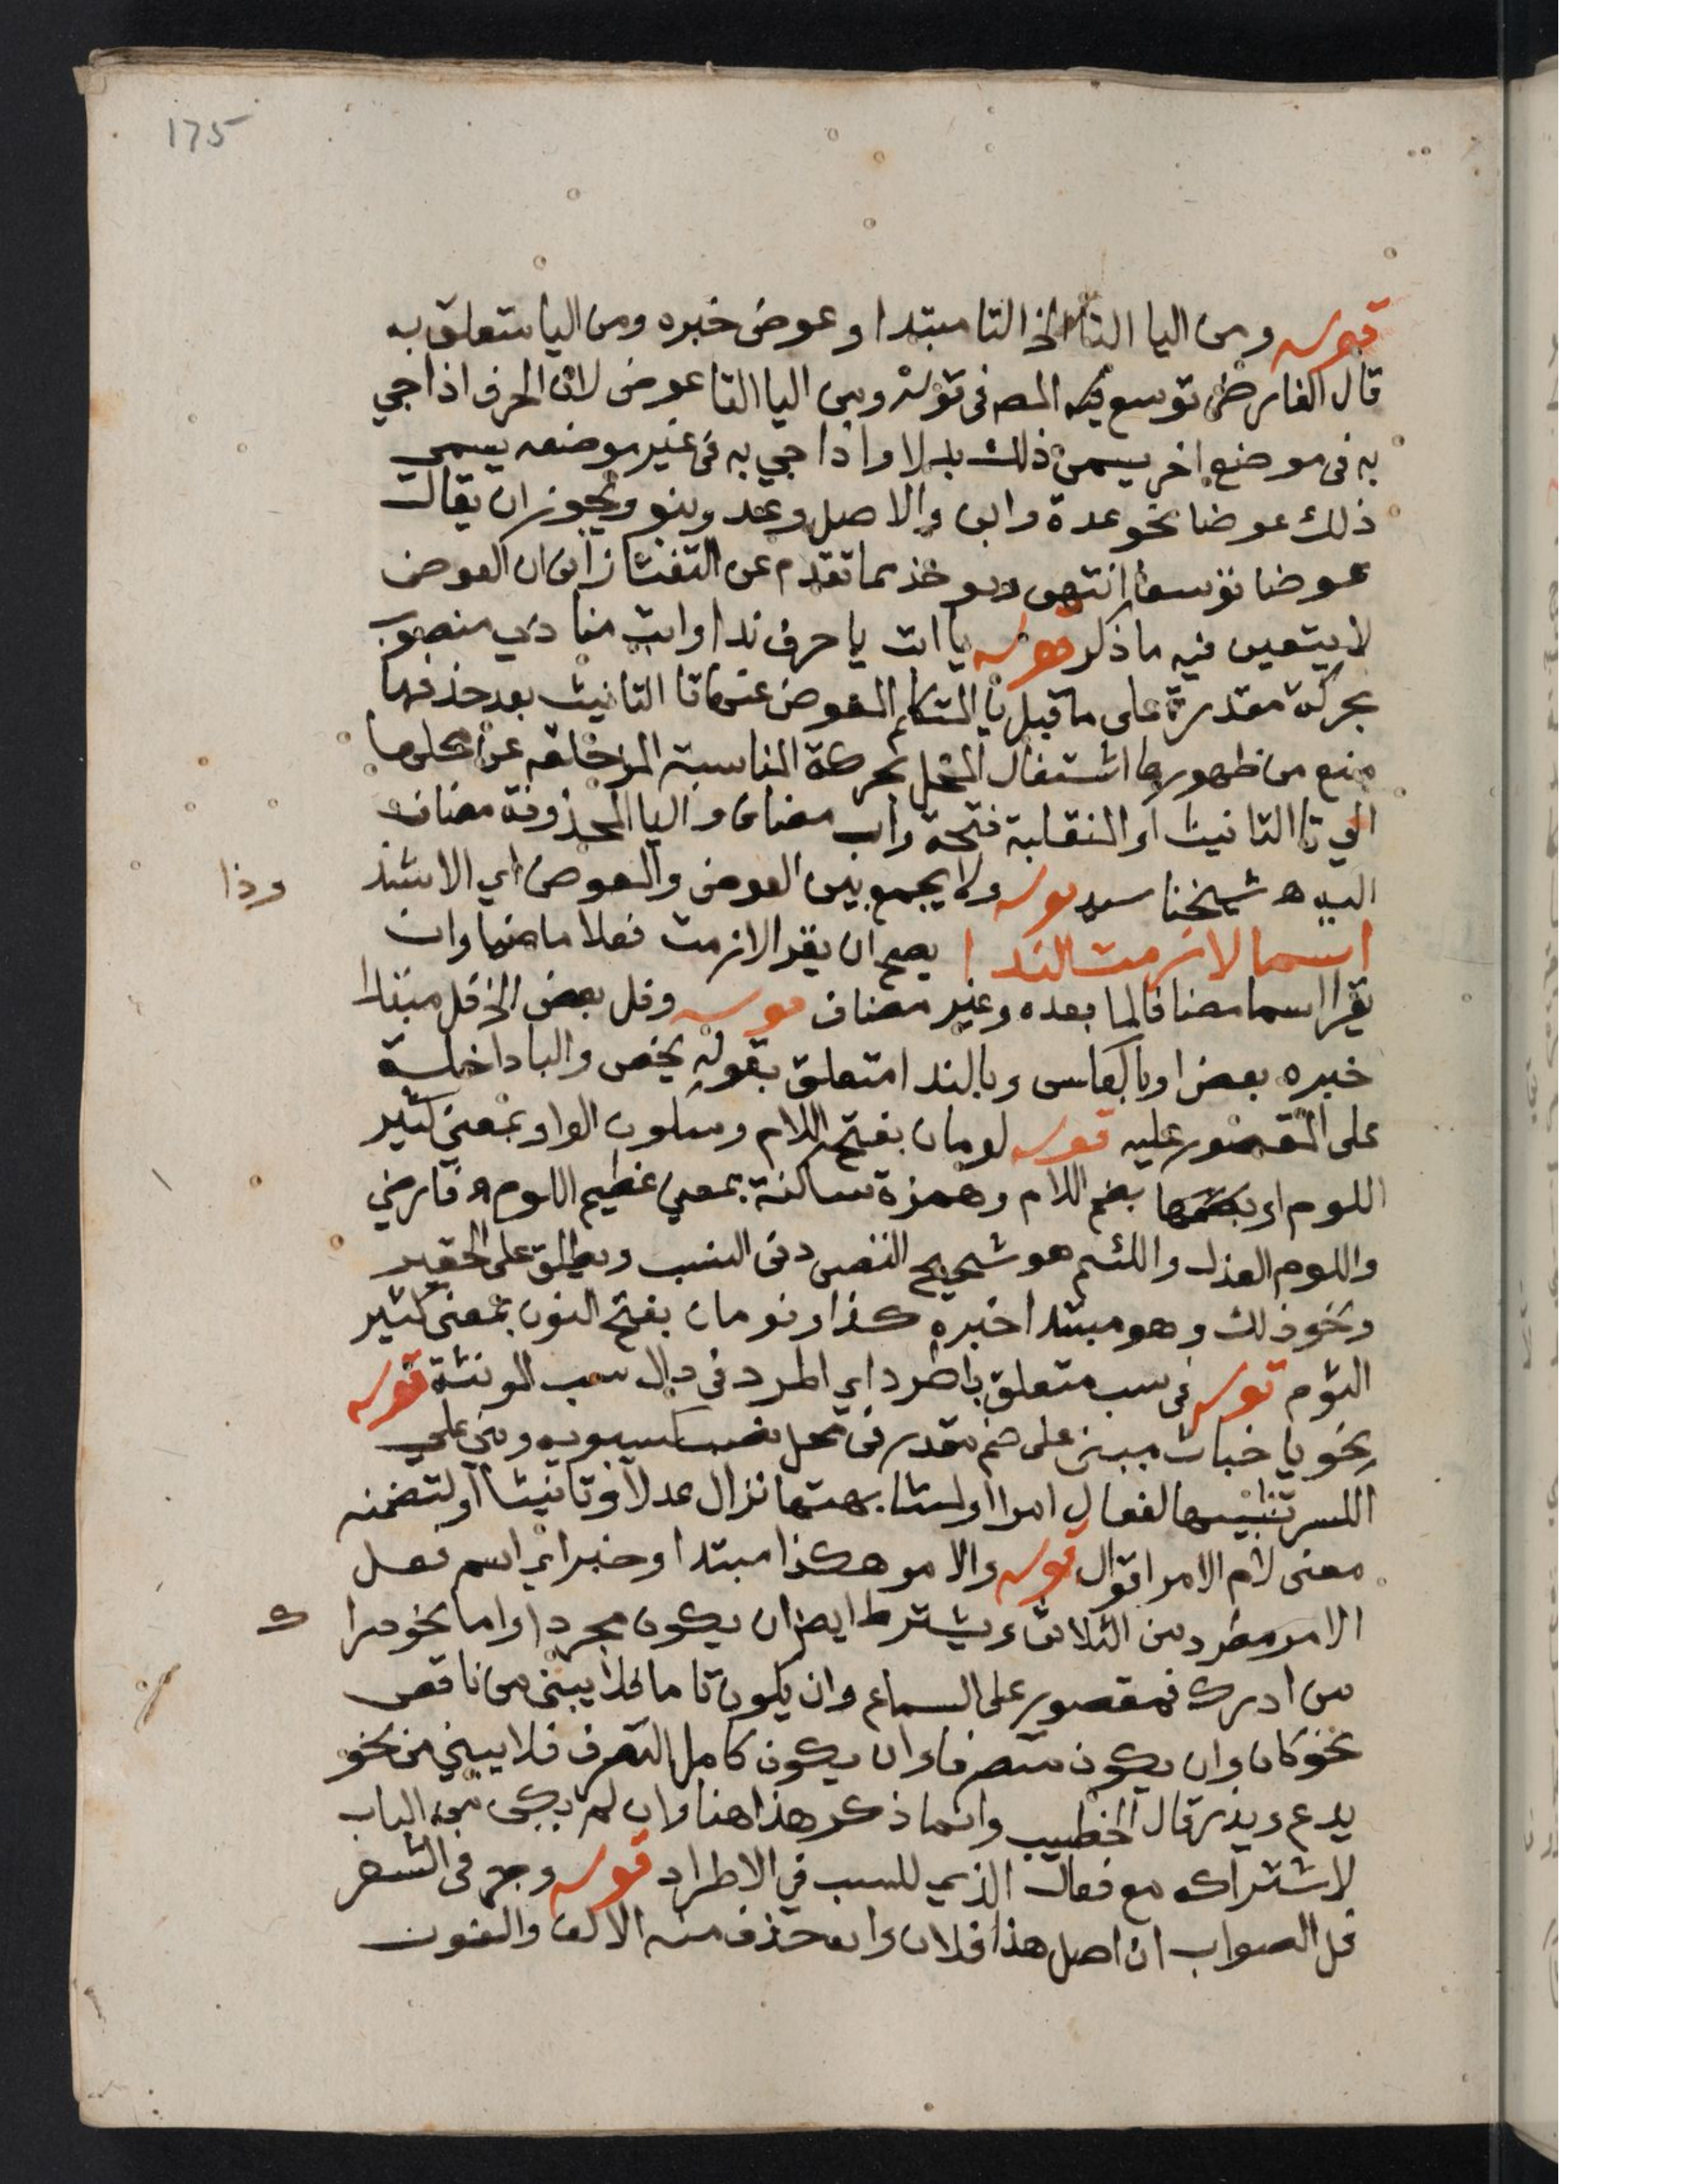 175
قوله ومن اليا التا الخ التا مبتدا وعوض خبره ومن اليا متعلق به
قال الفارضي توسع فيه المصـ في قوله ومن اليا التا عوض لان الحرف اذا جي
به في موضع اخر يسمى ذلك بدلا واذا جي به في غير موضعه يسمى
ذلك عوضا نحو عدة وابن والاصل وعد وبنو ويجوز ان يقال
عوضا توسعا انتهى ويوخذ مما تقدم عن التفتازاني ان العوض
لا يتعين فيه ما ذكر قوله يا ابت يا حرف ندا وابت منادي منصوب
بحركة مقدرة على ما قبل يا المتكلم المعوض عنها تا التانيث بعد حذفها
منع من ظهورها اشتغال المحل بحركة المناسبة المزحلقه عن محلها
الي تا التانيث او المنقلبة فتحة واب مضاف واليا المحذوفة مضاف
اليه ه شيخنا سيد قوله ولا يجمع بين العوض والمعوض اي الا شذ
وذا
اسما لازمت الندا يصح ان يقرا لازمت فعلا ماضيا وان
يقرا اسما مضافا لما بعده وغير مضاف قوله وفل بعض الخ فل مبتدا
خبره بعض او بالعكس وبالندا متعلق بقوله يخص والبا داخلة
على المقصور عليه قوله لومان بفتح اللام وسكون الواو بمعنى كثير
اللوم او بضمها بضم اللام وهمزة ساكنة بمعني عظيم اللوم ه فارضي
واللوم العذل واللئم هو شحيح النفس دني النسب ويطلق على الحقير
ونحو ذلك وهو مبتدا خبره كذا ونومان بفتح النون بمعنى كثير
النوم قوله في سب متعلق باطردا اي اطرد في دال سب الونثة قوله
نحو يا خباث مبني على ضم مقدر في محل نصب كسيبويه وبني على
الكسر تشبيها لفعال امرا او لمشابهتها نزال عدلا وتانيثا او لتضمنه
معنى لام الامر اقوال قوله والامر هكذا مبتدا وخبر اي اسم فعل
الامر مطرد من الثلاثي ويشترط ايضا ان يكون مجردا واما نحو درا
ك
من ادرك فمقصور على السماع وان يكون تاما فلا يبنى من ناقص
نحو كان وان يكون متصرفا وان يكون كامل التصرف فلا يبني من نحو
يدع ويذر قال الخطيب وانما ذكر هذا هنا وان لم يكن من الباب
لاشتراكه مع فعال الذي للسب في الاطراد قوله وجر في الشعر
فل الصواب ان اصل هذا فلان وانه حذف منه الالف والنون